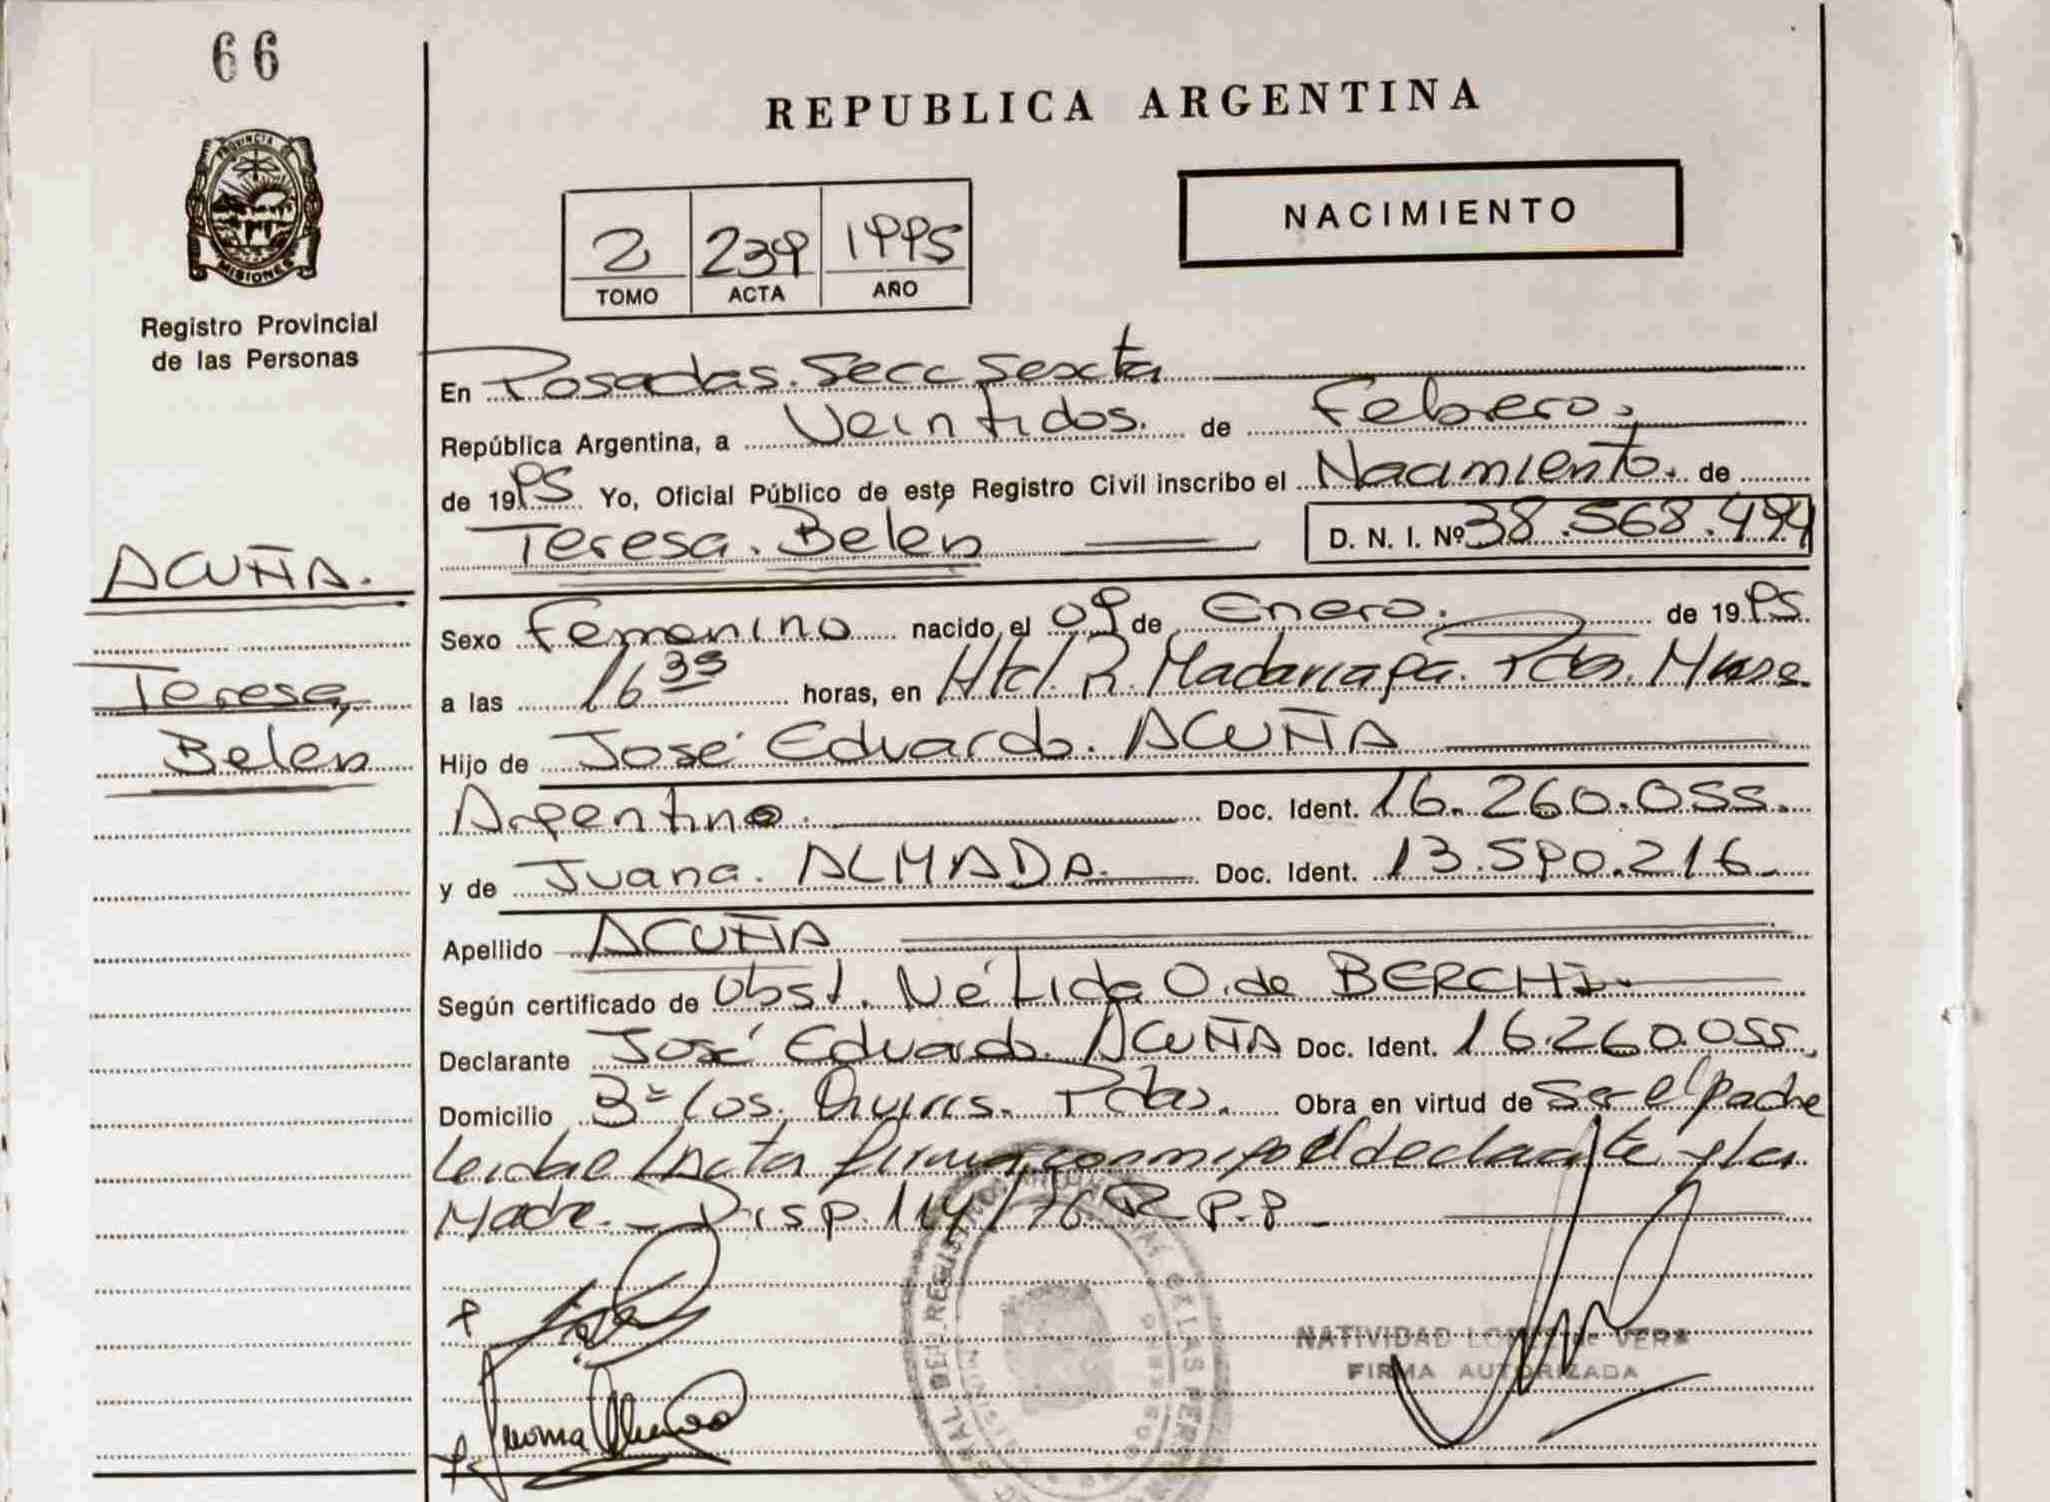 66
PROVINCIA DE
MISIONES
Registro Provincial
de las Personas
ACUÑA.
Teresa,
Belén
REPUBLICA ARGENTINA
NACIMIENTO
2 239 1995
TOMO ACTA AÑO
En Posadas. Secc Sexta
República Argentina, a Veintidos. de Febrero.
de 1995 Yo, Oficial Público de este Registro Civil inscribo el Nacimiento. de
Teresa. Belén D. N. I. Nº 38.568.494
Sexo Femenino nacido el 09 de Enero. de 1995.
a las 16 35 horas, en Htal. R. Madariaga. Pdas. Mnes.
Hijo de José Eduardo. ACUÑA
Argentino. Doc. Ident. 16.260.055.
y de Juana. ALMADA. Doc. Ident. 13.590.216
Apellido ACUÑA
Según certificado de Obst. Nélida O. de BERCHI.
Declarante José Eduardo ACUÑA Doc. Ident. 16.260.055.
Domicilio Pdas. Obra en virtud de ser el padre
Leida el Acta firma conmigo el declarante y la
Madre. Disp. 114/76 R.P.P
NATIVIDAD LOPEZ de VERA
FIRMA AUTORIZADA